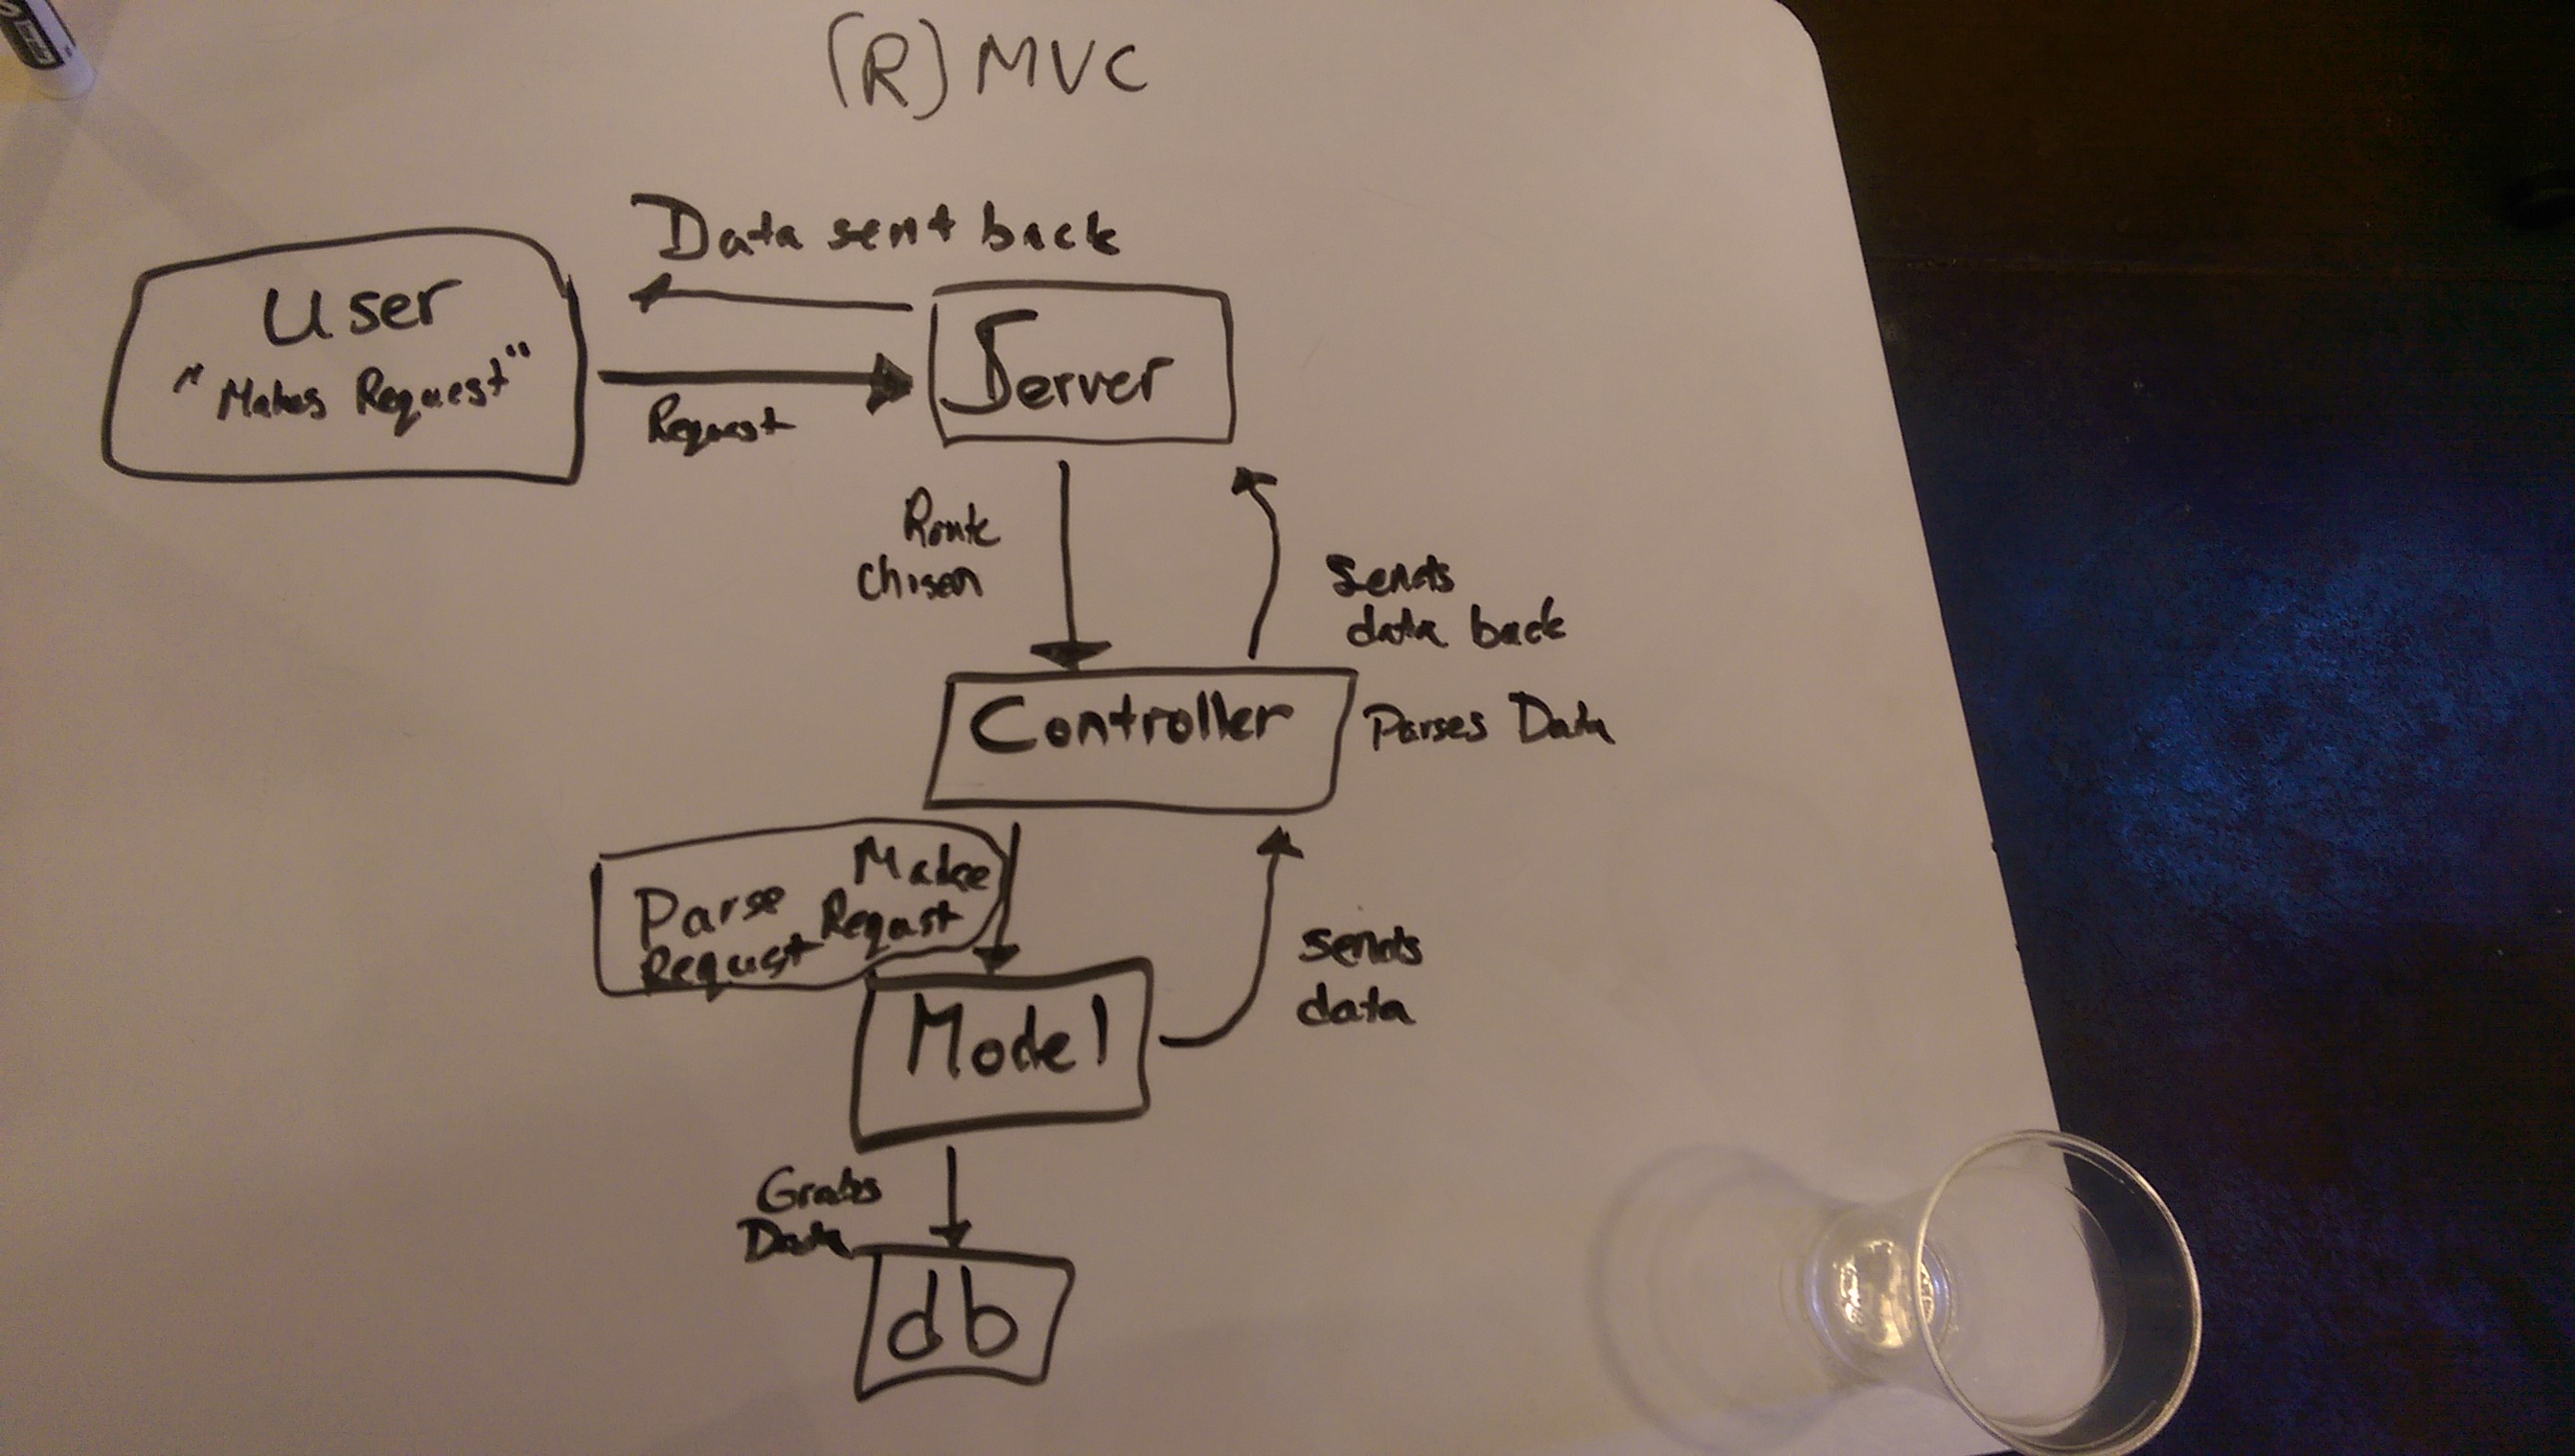 (R) MVC
Data sent back
User
"Makes Request"
Request
Server
Route
Chosen
Sends
data back
Controller
Parses Data
Make
Request
Parse
Request
Model
sends
data
Grabs
Data
db